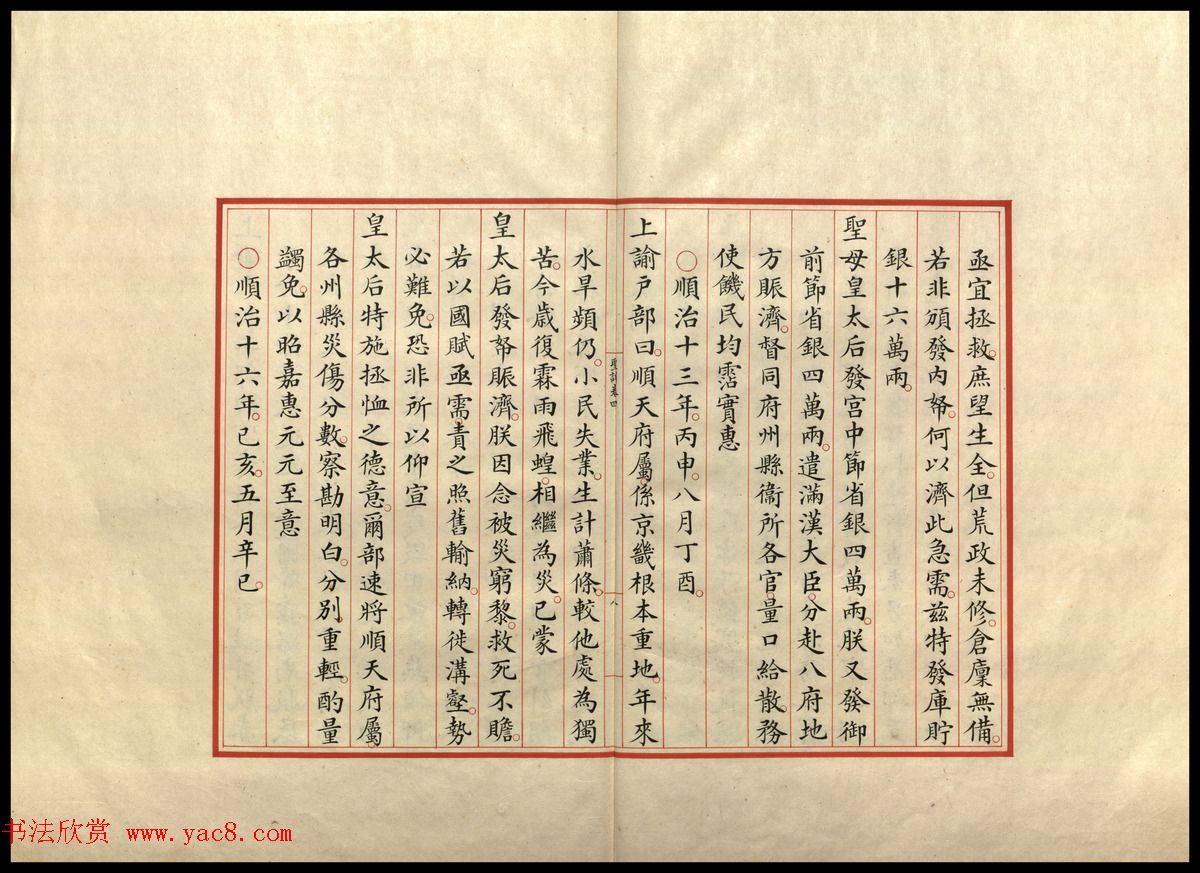 亟宜拯救庶望生全但荒政未修倉廩無備
若非頒發内帑何以濟此急需兹特發庫貯
銀十六萬兩
聖母皇太后發宫中節省銀四萬兩朕又發御
前節省銀四萬兩遣滿漢大臣分赴八府地
方賑濟督同府州縣衞所各官量口給散務
使饑民均霑實惠
○順治十三年丙申八月丁酉
上諭戸部曰順天府屬係京畿根本重地年來
聖訓卷四
八
水旱頻仍小民失業生計蕭條較他處為獨
苦今歲復霖雨飛蝗相繼為災已蒙
皇太后發帑賑濟朕因念被災窮黎救死不贍
若以國賦亟需責之照舊輸納轉徙溝壑勢
必難免恐非所以仰宣
皇太后特施拯恤之德意爾部速將順天府屬
各州縣災傷分數察勘明白分别重輕酌量
蠲免以昭嘉惠元元至意
○順治十六年己亥五月辛巳
书法欣赏 www.yac8.com